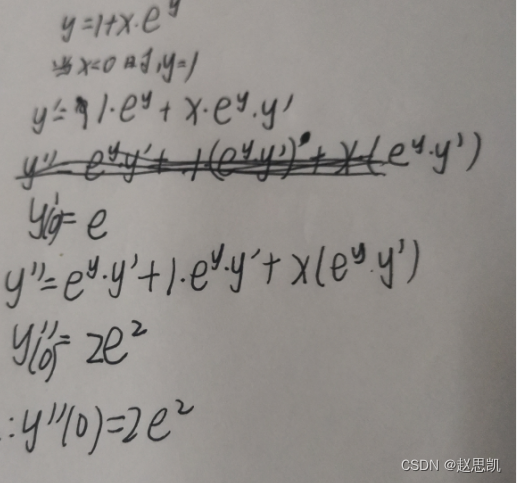 y=1+x·e^y
当x=0时,y=1
y'=1·e^y+x·e^y·y'
y''=e^y·y'+1(e^y y')+x(e^y·y')
y'(0)=e
y''=e^y·y'+1·e^y·y'+x(e^y·y')
y''(0)=2e²
∴y''(0)=2e²
CSDN @赵思凯